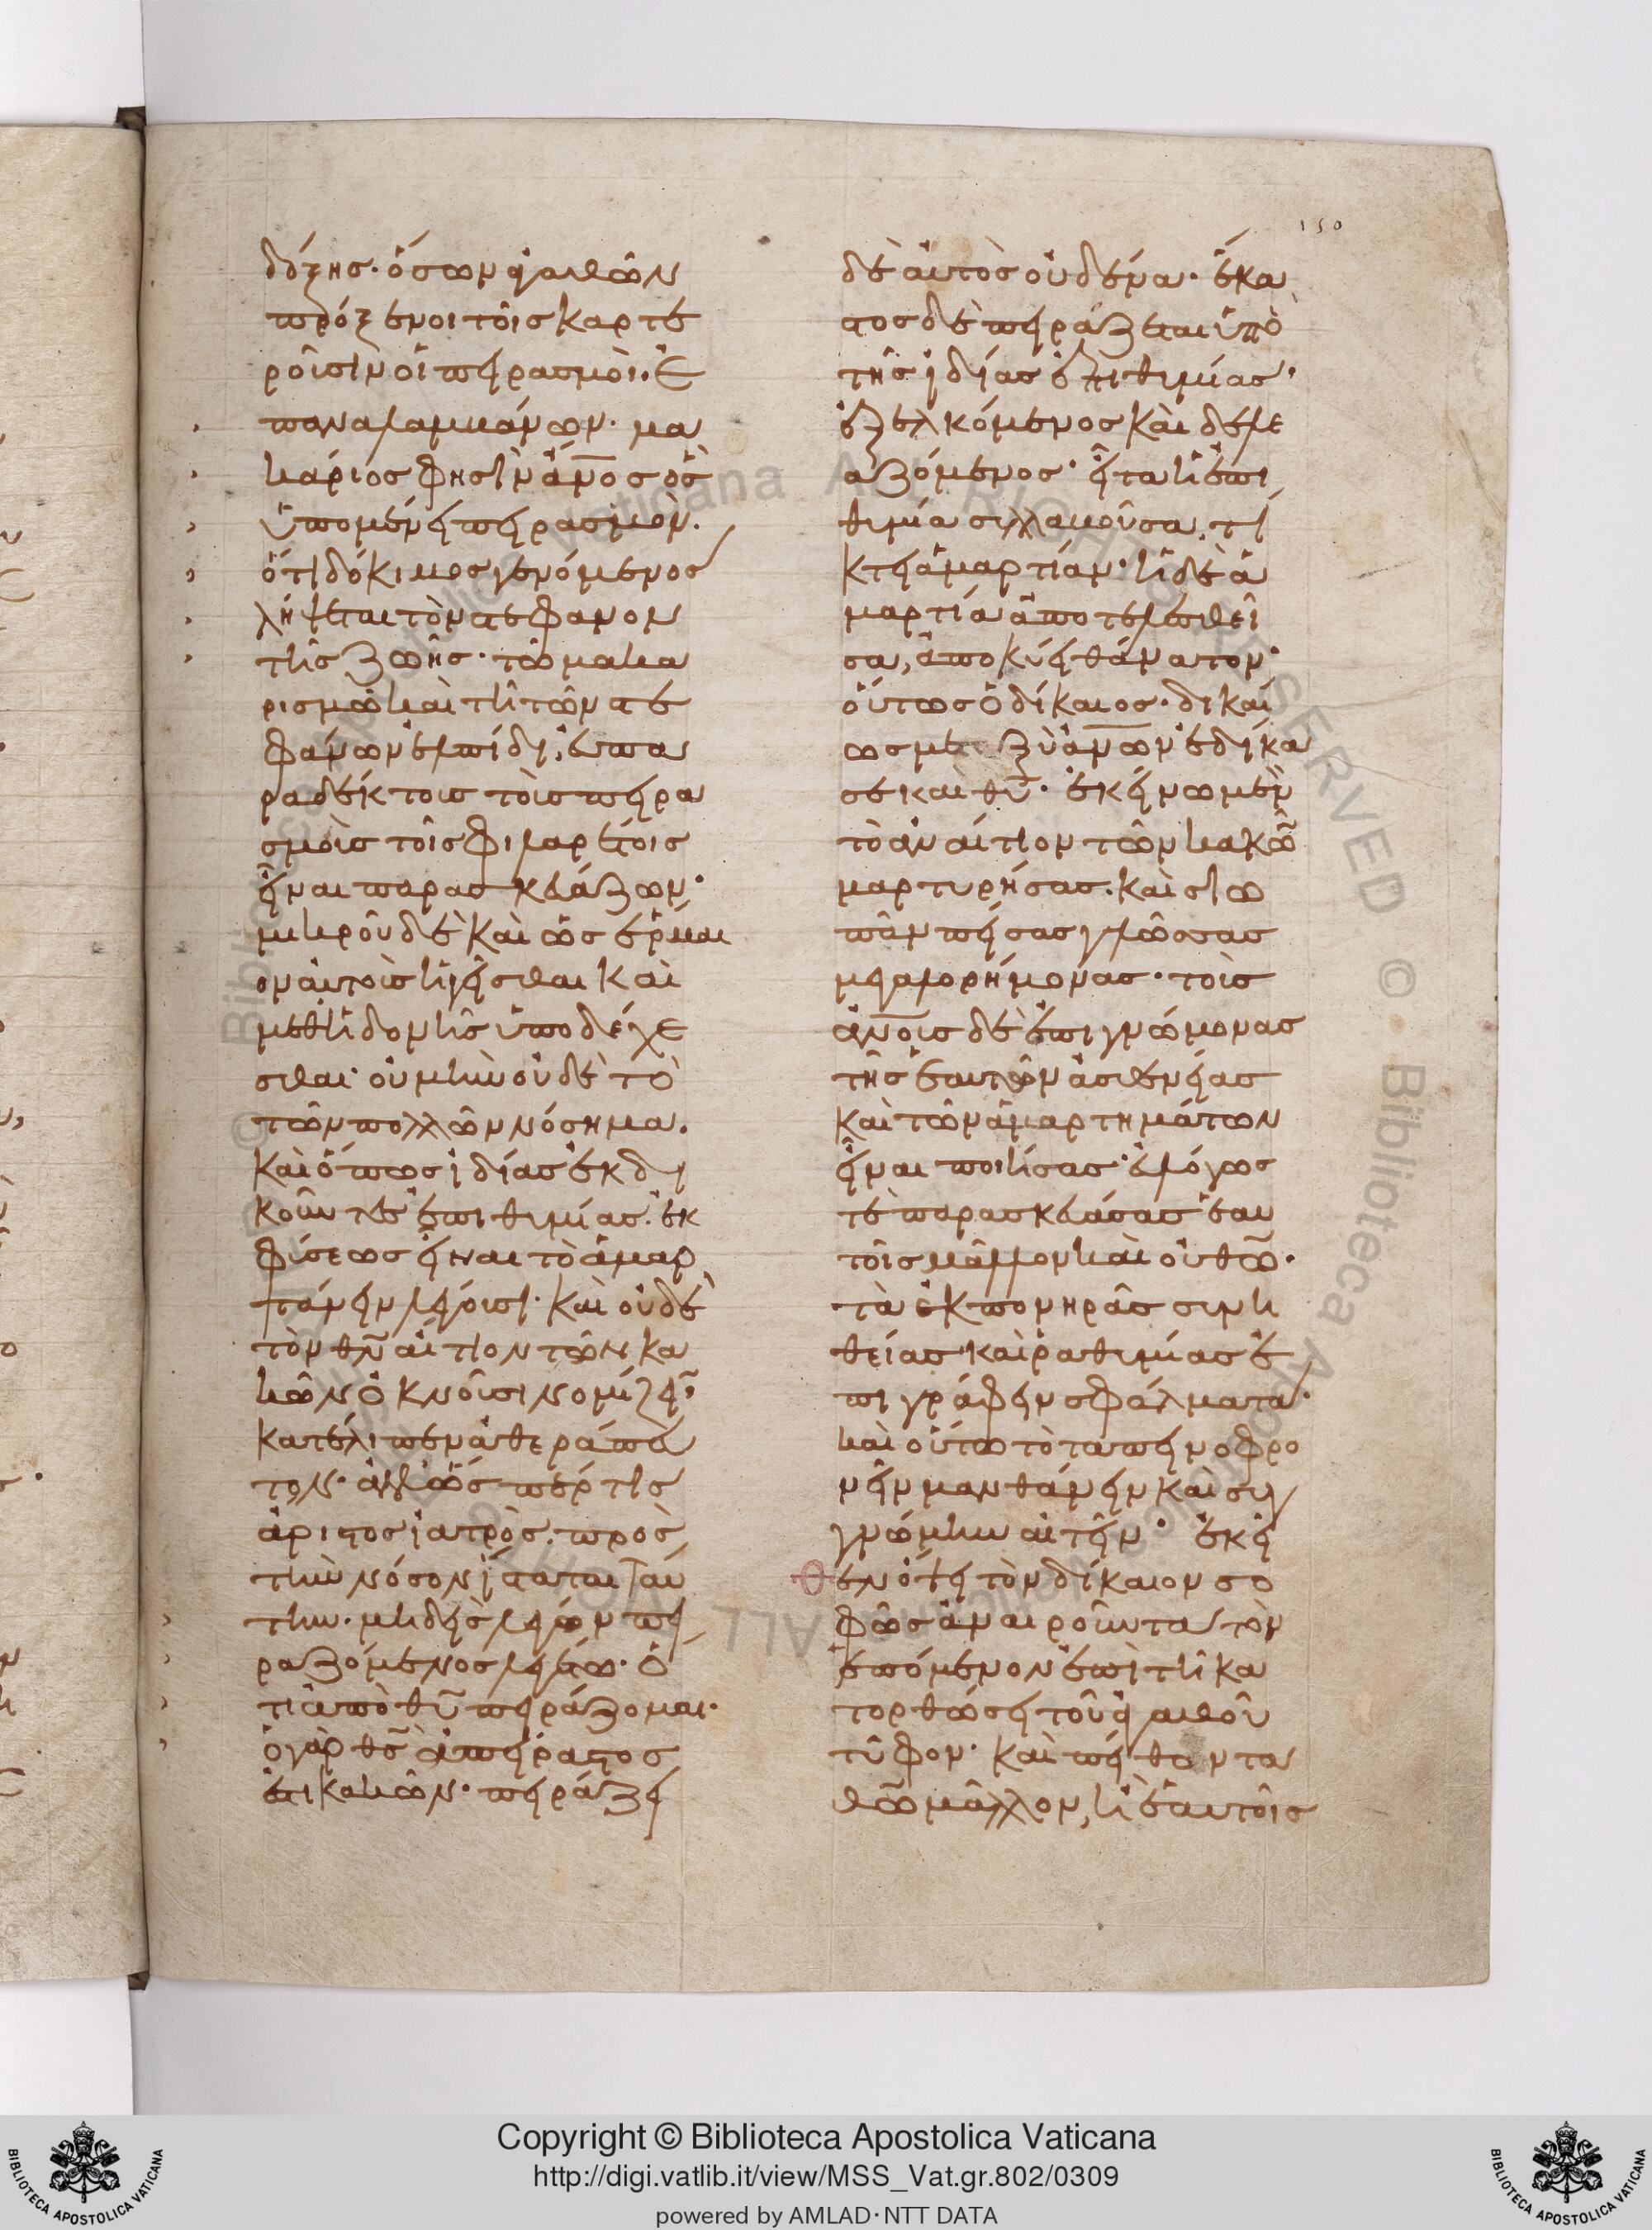 150
δόξης· ὅσων ἀγαθῶν
πρόξενοι τοῖς καρτε
ροῖσὶν οἱ πειρασμοὶ. Ἐ
παναλαμβάνων· μα
κάριος φησὶν ἀνος ὃς
ὑπομένει πειρασμὸν.
ὅτι δόκιμος γενόμενος
λήψεται τὸν στέφανον
τῆς ζωῆς· τῶ μακα
ρισμῶ καὶ τῆ τῶν στε
φάνων ἐλπίδι, εὐπα
ραδέκτοις τοῖς πειρα
σμοῖς τοῖς φιλαρέτοις
εἶναι παρασκευάζων·
μικροῦ δὲ καὶ ὡς ἕρμαι
ον αὐτοῖς ἡγεῖσθαι καὶ
μεθ ἡδονῆς ὑποδέχε
σθαι· οὐ μὴν οὐδὲ τὸ
τῶν πολλῶν νόσημα.
καὶ ὅπως ἰδίας ἐκδι
κοῦντες ἐπιθυμίας. ἐκ
φύσεως εἶναι τὸ ἁμαρ
τάνειν λέγουσι· καὶ οὐδὲ
τὸν θν αἴτιον τῶν κα
κῶν ὀκνοῦσι νομίζειν·
κατέλιπεν ἀθεράπευ
τον· ἀλλ ὥσπερ τίς
ἄριστος ἰατρὸς. πρὸς
τὴν νόσον ἵσταται ταύ
την. μηδεὶς λέγων πει
ραζόμενος λεγέτω· ὅ
τι ἀπὸ θυ πειράζομαι·
ὁ γὰρ θς ἀπείραστος
ἐστι κακῶν· πειράζει
δὲ αὐτὸς οὐδένα· ἕκα
στος δὲ πειράζεται ὑπὸ
τῆς ἰδίας ἐπιθυμίας·
ἐξελκόμενος καὶ δελε
αζόμενος· εἶτα ἡ ἐπι
θυμία συλλαβοῦσα, τί
κτει ἁμαρτίαν· ἡ δὲ ἁ
μαρτία ἀποτελεσθεῖ
σα, ἀποκύει θάνατον·
οὕτως ὁ δίκαιος· δικαί
ως μεταξὺ ἀνων ἐδίκα
σε καὶ θυ· ἐκείνω μὲν
τὸ ἀναίτιον τῶν κακῶν
μαρτυρήσας. καὶ σιω
πᾶν πείσας γλώσσας
μεγαλορήμονας· τοῖς
ἀνοις δὲ ἐπιγνώμονας
τῆς ἑαυτῶν ἀσθενείας
καὶ τῶν ἁμαρτημάτων
εἶναι ποιήσας· εὐλόγως
τὲ παρασκευάσας ἑαυ
τοῖς μᾶλλον καὶ οὐ θω·
τὰ ἐκ πονηρᾶς συνη
θείας καὶ ραθυμίας ἐ
πιγράφειν σφάλματα·
καὶ οὕτω τὸ ταπεινοφρο
νεῖν μανθάνειν καὶ συγ
γνώμην αἰτεῖν· ἐκεῖ
θεν ὅτε τὸν δίκαιον σο
φῶς ἀναιροῦντα τὸν
ἑπόμενον ἐπὶ τῆ κα
τορθώσει τοῦ ἀγαθοῦ
τύφον· καὶ πείθοντα
θω μᾶλλον, ἢ ἑαυτοῖς
Copyright © Biblioteca Apostolica Vaticana
http://digi.vatlib.it/view/MSS_Vat.gr.802/0309
powered by AMLAD·NTT DATA